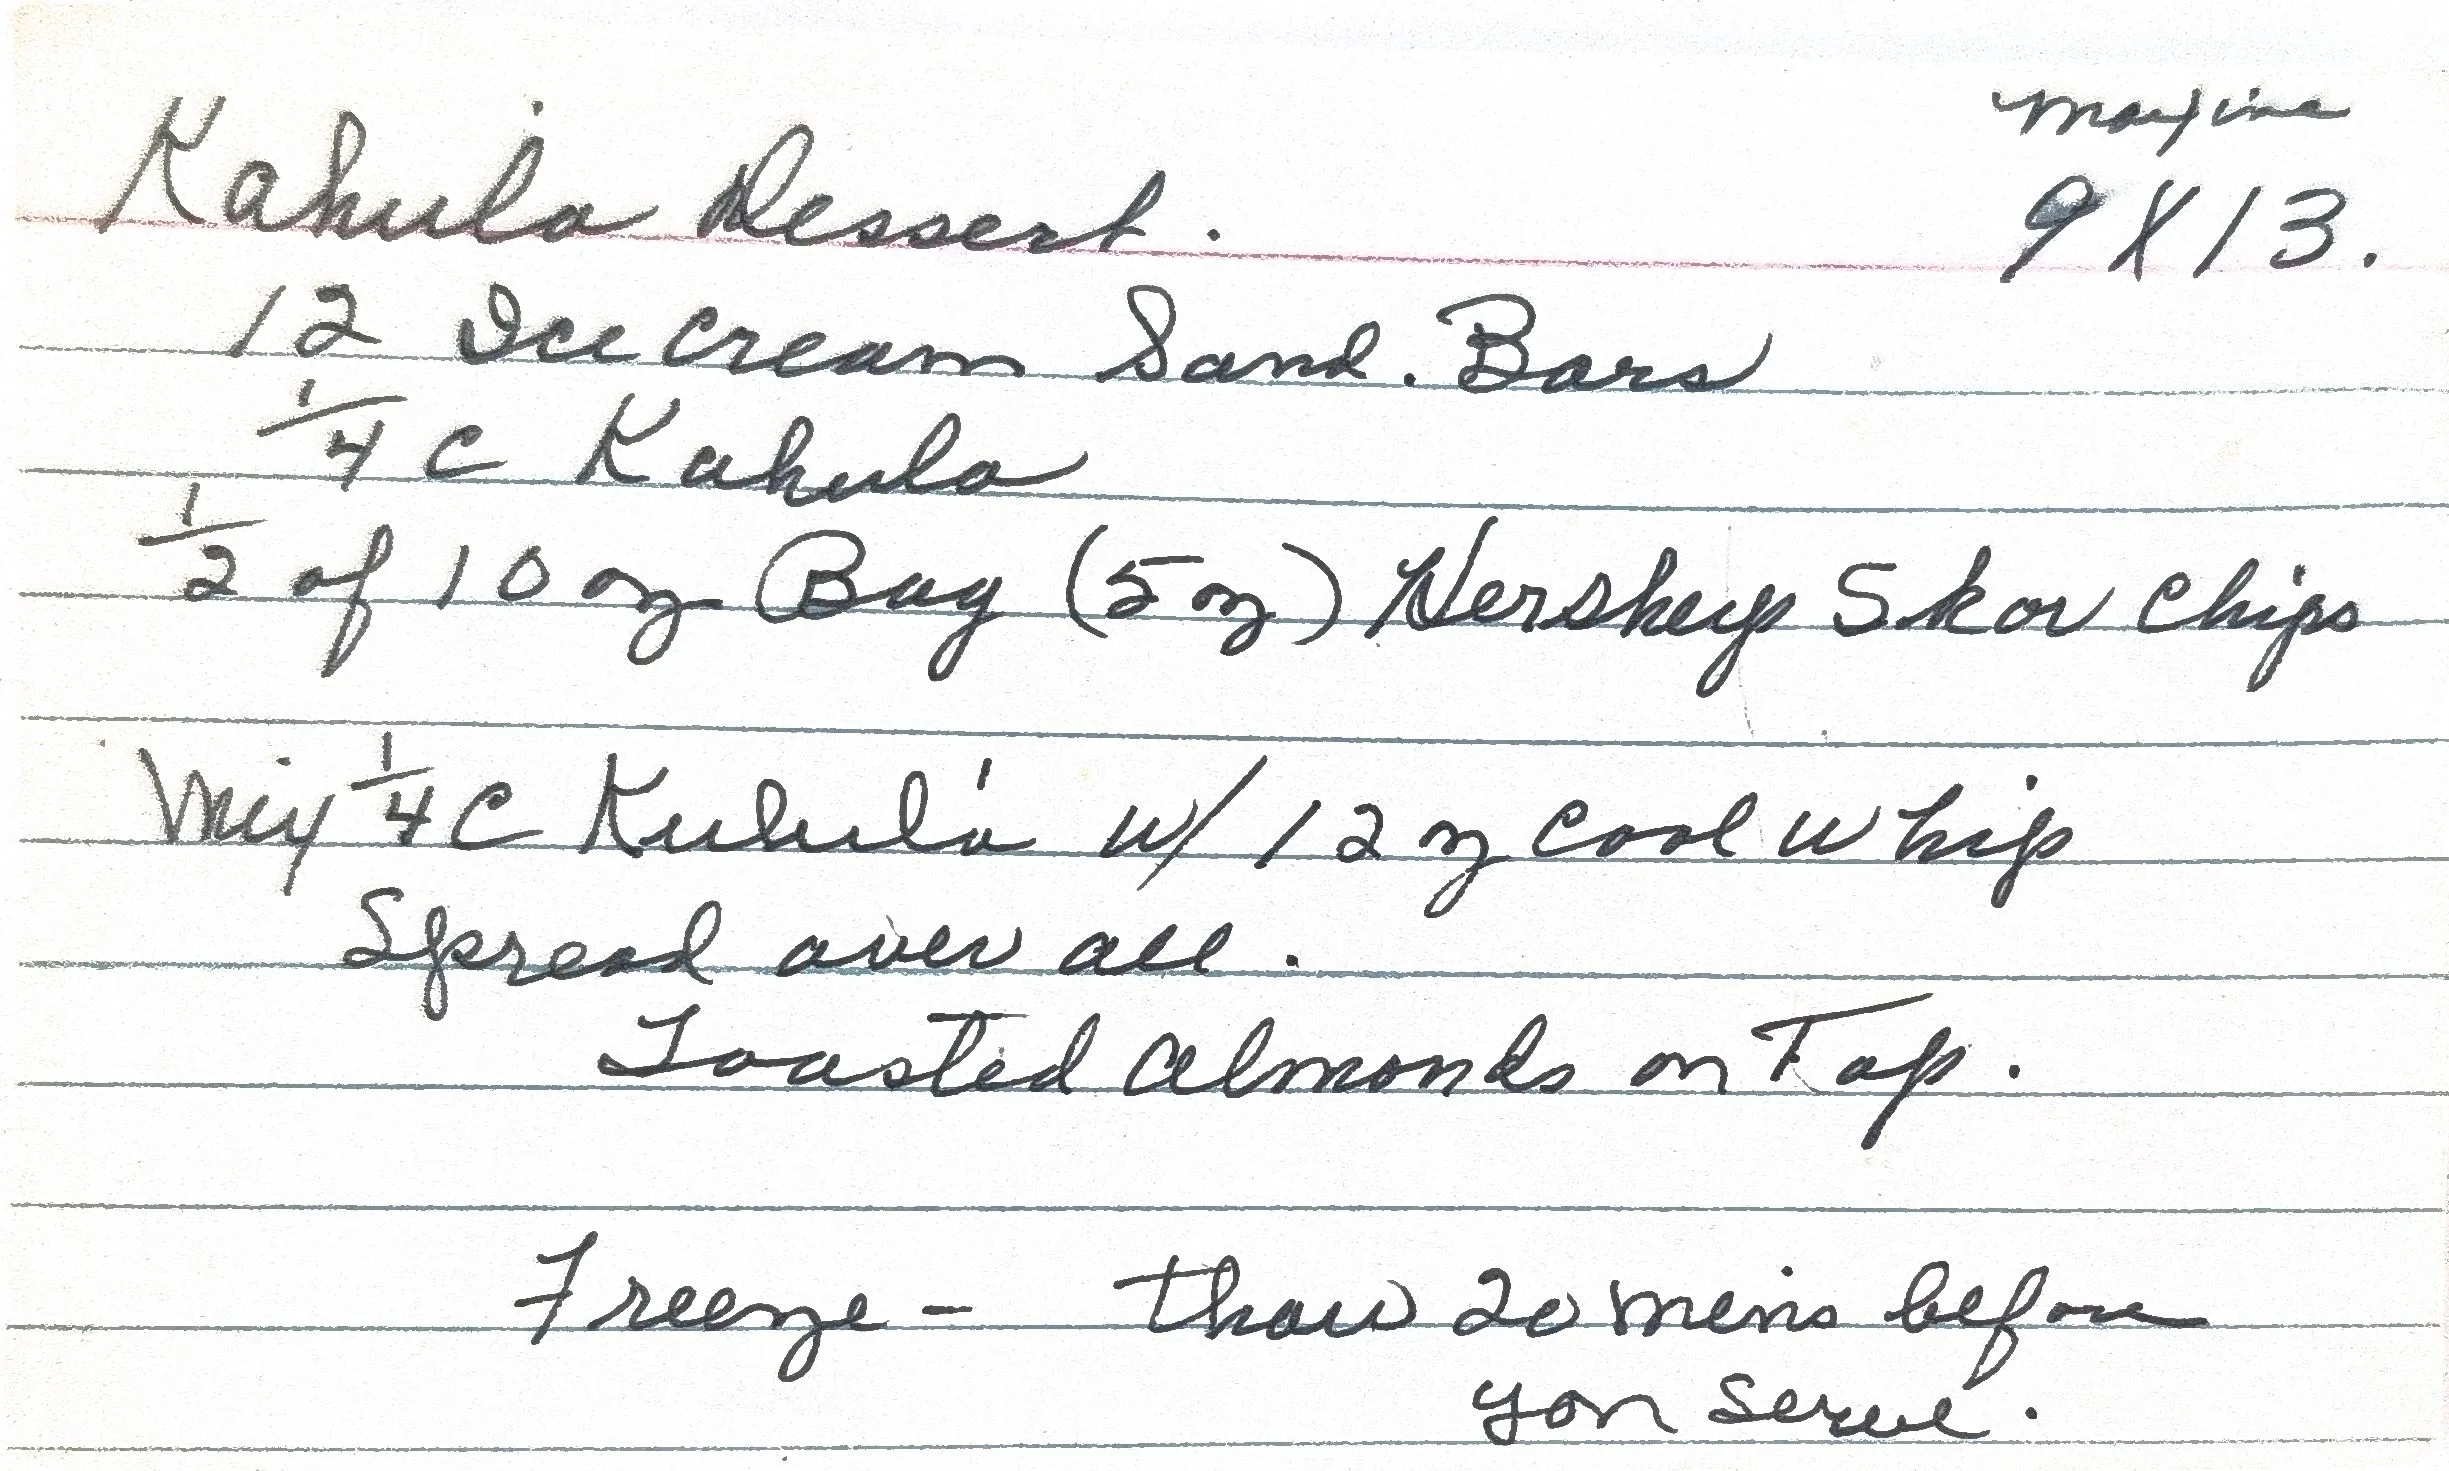 Maxine
Kahula Dessert. 9X13.
12 Ice Cream Sand. Bars
1/4 C Kahula
1/2 of 10 oz Bag (5 oz) Hersheys Skor Chips
Mix 1/4 C Kuhula w/ 12 oz Cool Whip
Spread over all.
Toasted Almonds on Top.
Freeze - thaw 20 mins before
you serve.